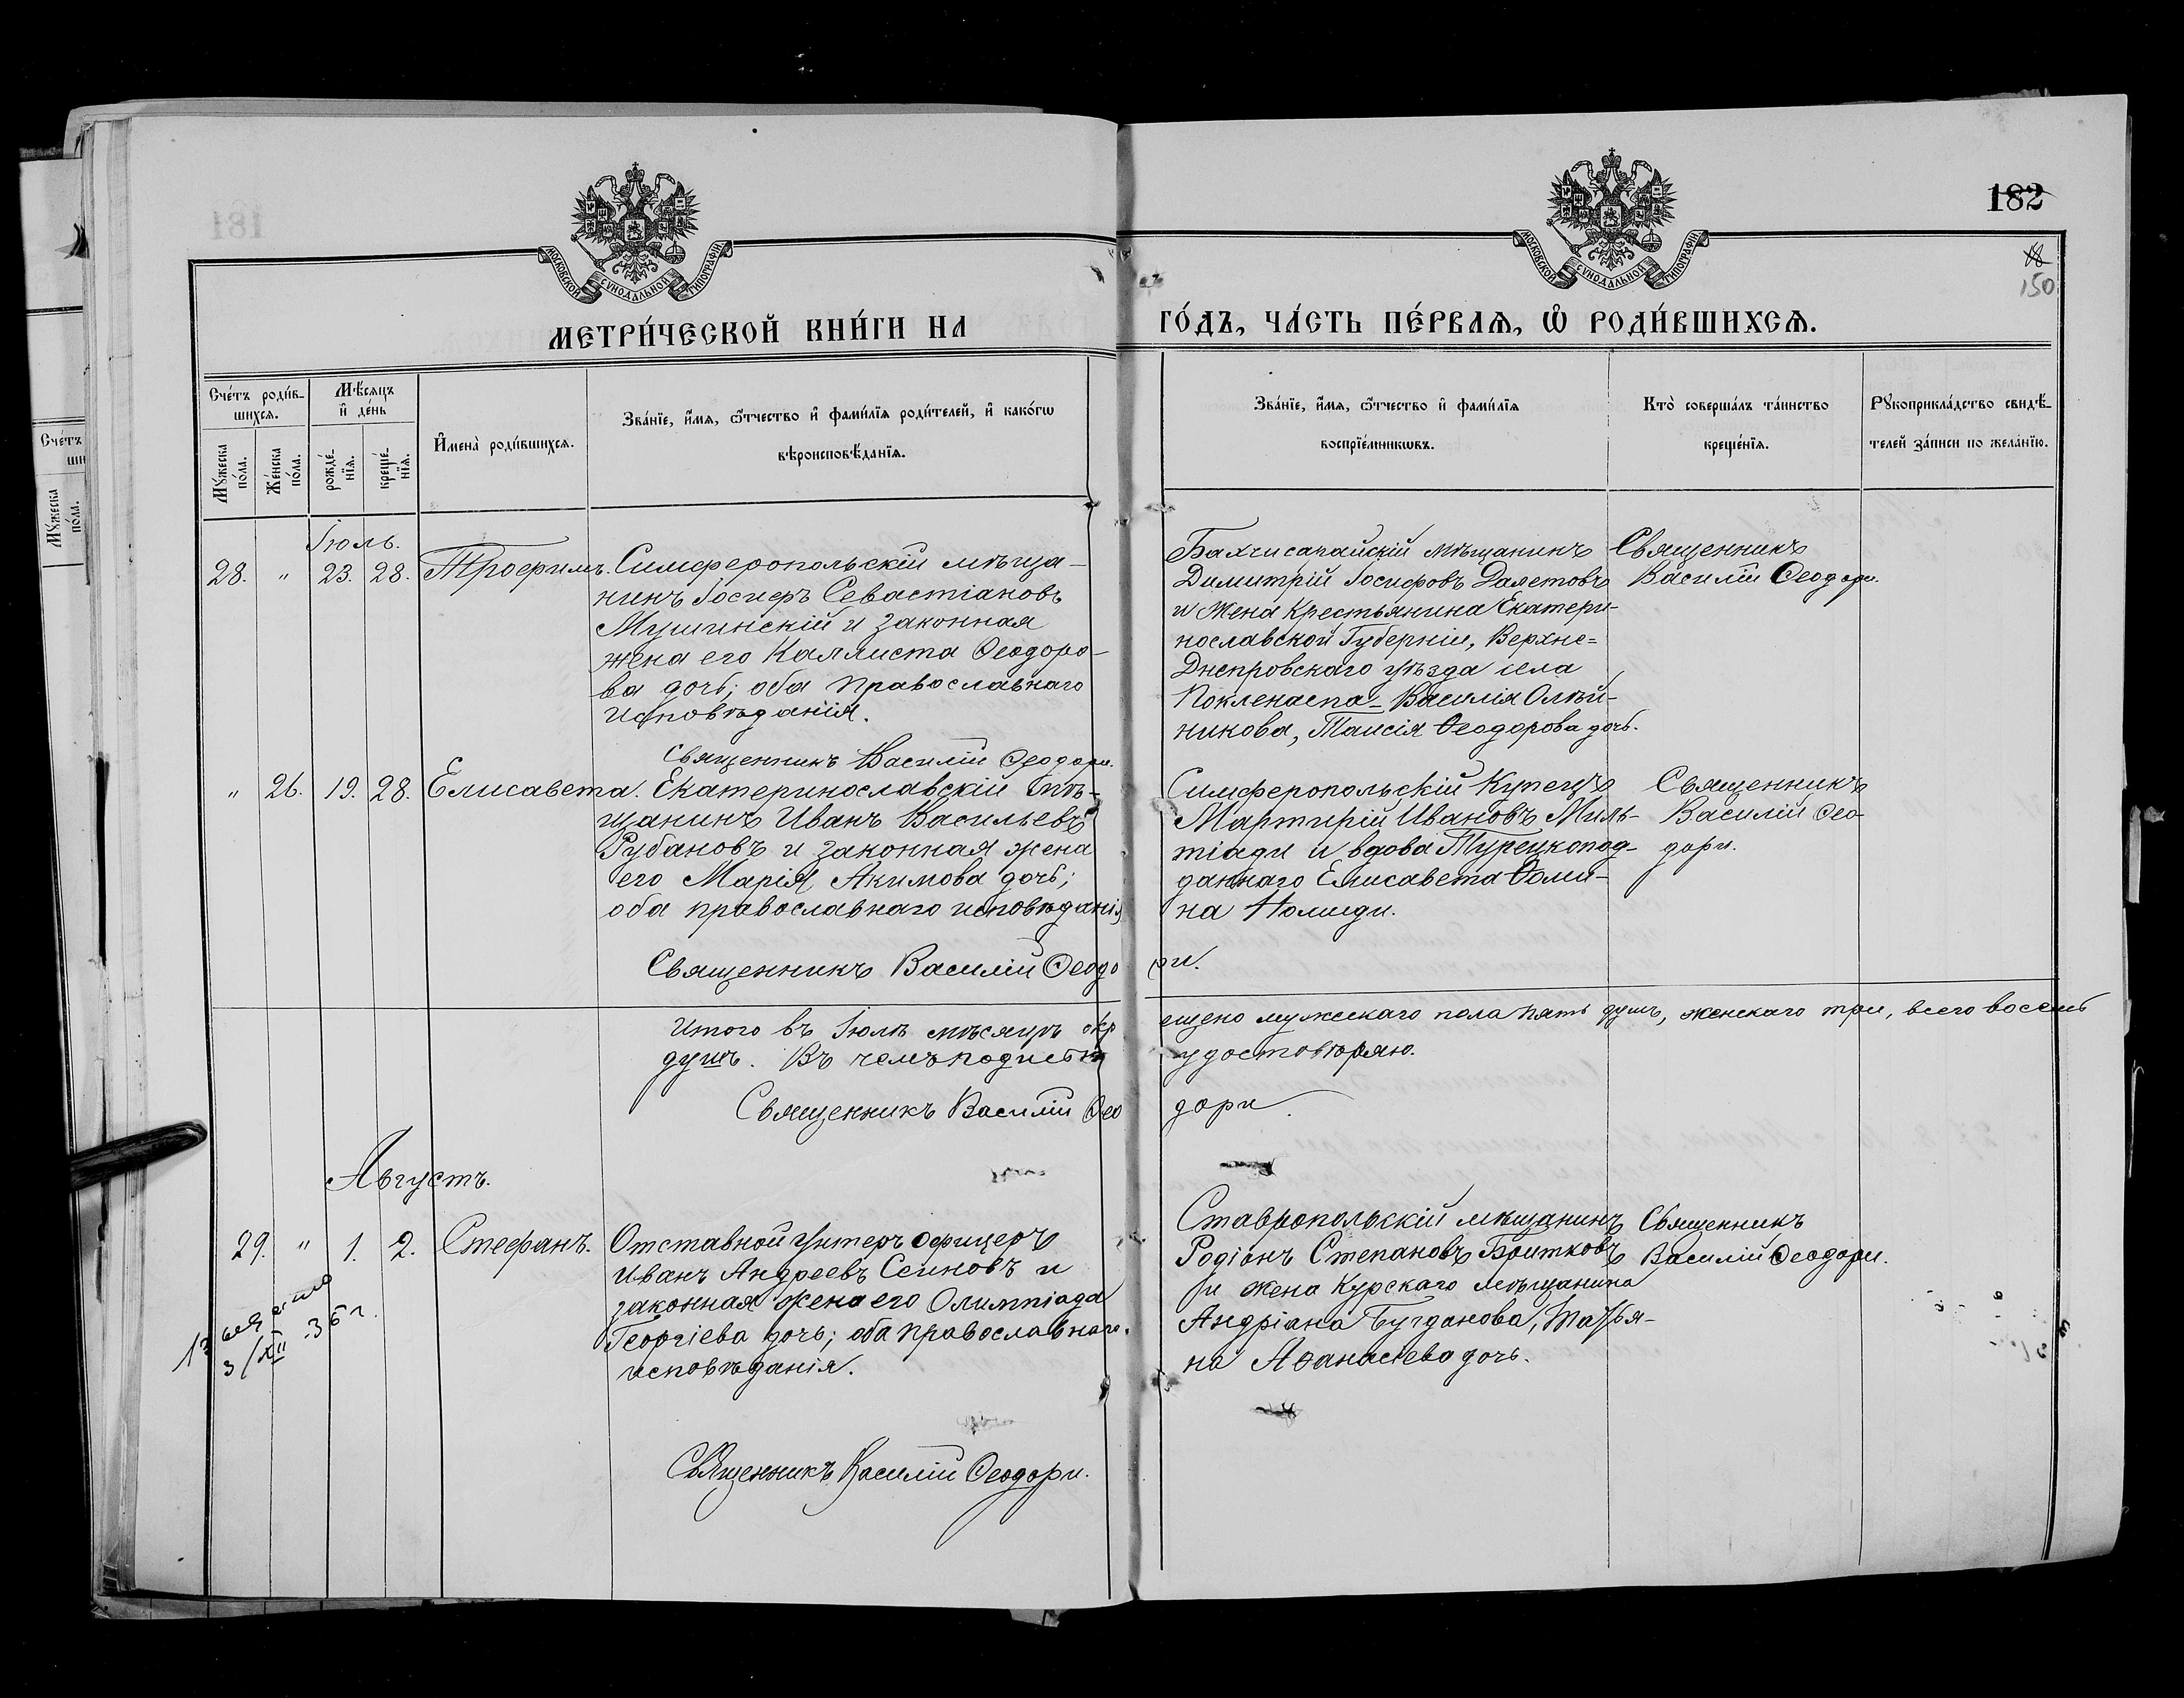 181
182
150
МОСКОВСКОЙ СѴНОДАЛЬНОЙ ТИПОГРАФІИ
МОСКОВСКОЙ СѴНОДАЛЬНОЙ ТИПОГРАФІИ
МЕТРИ́ЧЕСКОЙ КНИ́ГИ НА
ГО́ДЪ, ЧА́СТЬ ПЕ́РВАѦ, Ѽ РОДИ́ВШИХСѦ.
Сче́тъ роди́в-
шихсѧ.
Мꙋ́жеска по́ла.
Же́нска по́ла.
Мѣ́сѧцъ
и҆ де́нь
рожде́-нїѧ.
креще́-нїѧ.
И҆мена̀ роди́вшихсѧ.
Зва́нїе, и҆́мѧ, ѻ҆́тчество и҆ фами́лїѧ роди́телей, и҆ како́гѡ
вѣроисповѣ́данїѧ.
Зва́нїе, и҆́мѧ, ѻ҆́тчество и҆ фами́лїѧ
воспрїе́мникѡвъ.
Кто̀ соверша́лъ та́инство
креще́нїѧ.
Рꙋкоприкла́дство свидѣ́-
телей за́писи по жела́нїю.
Сче́тъ
Мꙋ́жеска по́ла.
Іюль.
28. " 23. 28. Трофимъ. Симферопольскій мѣща-
нинъ Іосифъ Севастіановъ
и законная
жена его Каллиста Ѳеодоро-
ва дочь; оба Православнаго
Исповѣданія.
Священникъ Василій Ѳеодори.
Бахчисарайскій мѣщанинъ
Димитрій Іосифовъ Далетовъ
и жена крестьянина Екатери-
нославской Губерніи, Верхне=
Днепровскаго уѣзда села
Василія Олѣй-
никова, Таисія Ѳеодорова дочь.
Священникъ
Василій Ѳеодори.
" 26. 19. 28. Елисавета. Екатеринославскій мѣ-
щанинъ Иванъ Васильевъ
Рубановъ и законная жена
его Марія Акимова дочь;
оба православнаго исповѣданія
Симферопольскій Купецъ
Мартирій Ивановъ Миль-
тіади и вдова Турецкопод-
даннаго Елисавета Ѳоми-
на
Священникъ
Василій Ѳео-
дори.
Священникъ Василій Ѳеодори.
Итого въ Іюлѣ мѣсяцѣ окрещено мужескаго пола пять душъ, женскаго три, всего восемь
душъ. Въ чемъ подписью удостовѣряю.
Священникъ Василій Ѳеодори.
Августъ.
29. " 1. 2. Стефанъ. Отставной Унтеръ офицеръ
Иванъ Андреевъ Сеиновъ и
законная жена его Олимпіада
Георгіева дочь; оба православнаго
исповѣданія.
Ставропольскій мѣщанинъ
Родіанъ Степановъ Бритковъ
и жена Курскаго мѣщанина
Андріана Бугданова, Татья-
на Аѳанасіева дочь.
Священникъ
Василій Ѳеодори.
3/XII-36 г.
Священникъ Василій Ѳеодори.